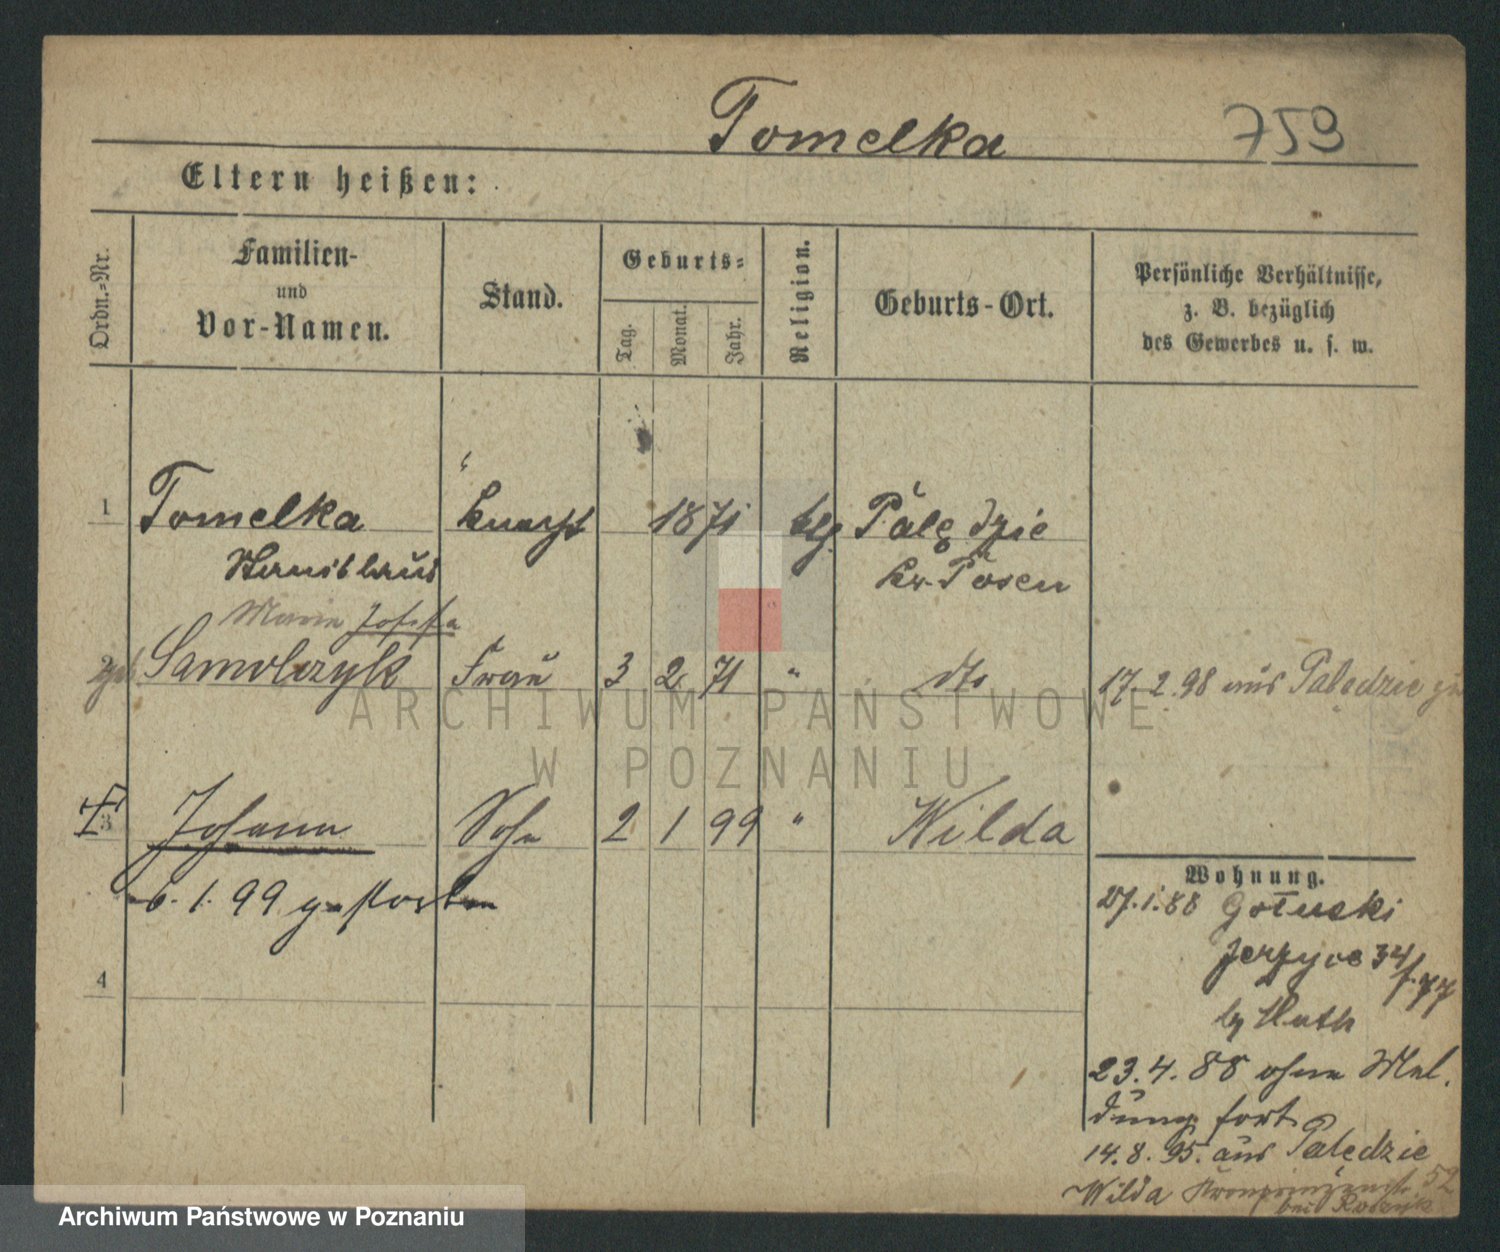 Tomelka 759
Eltern heißen:
Ordn.-Nr.
Familien-
und
Vor-Namen.
Stand.
Geburts-
Tag.
Monat.
Jahr.
Religion.
Geburts-Ort.
Persönliche Verhältnisse,
z. B. bezüglich
des Gewerbes u. s. w.
1 Tomelka Knecht 1871 ktl. Palędzie
Stanislaus Kr. Posen
Marie Josefa
2 geb Samolczyk Frau 3 2 71 " dto 17.2.98 aus Palędzie zu
3 Johann Sohn 2 1 99 " Wilda
6.1.99 gestorben
4
Wohnung.
27.1.88
Jerzyce 34
23.4.88 ohne Mel-
dung fort
14.8.95. aus Palędzie
Wilda Kronprinzenst. 52
bei
ARCHIWUM PAŃSTWOWE
W POZNANIU
Archiwum Państwowe w Poznaniu